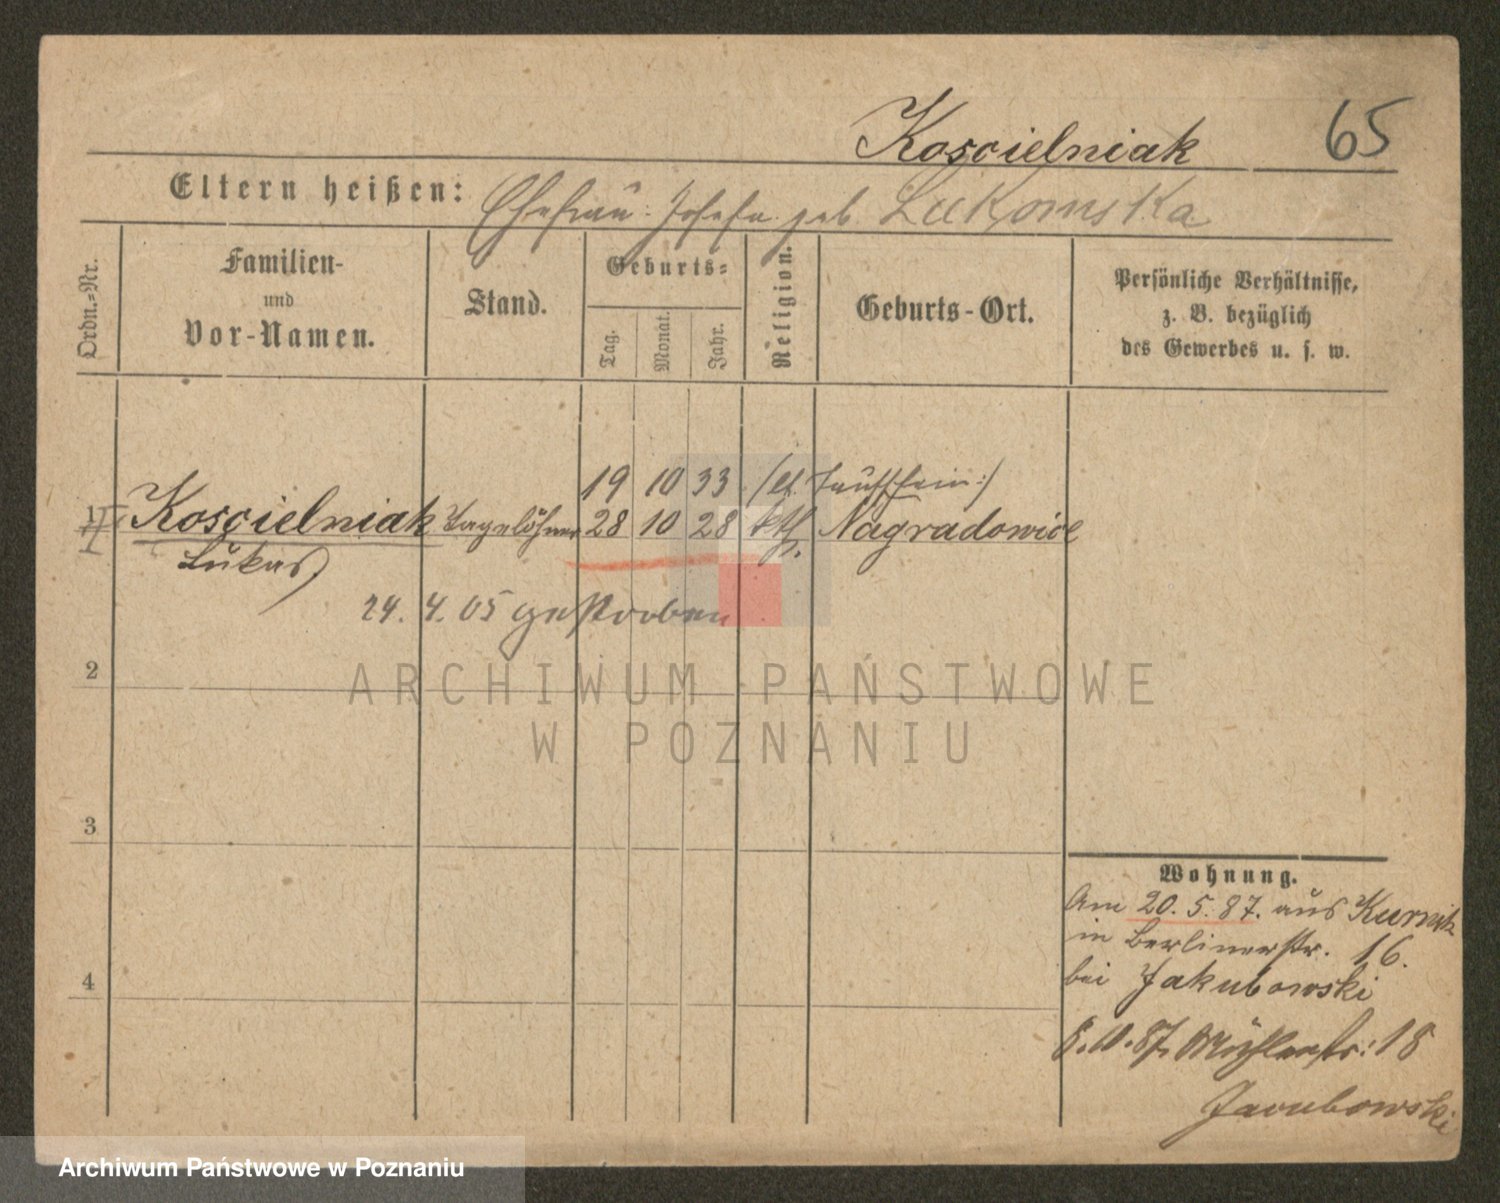 Koscielniak 65
Eltern heißen: Ehefrau: Josefa geb. Lukomska
Ordn.=Nr.
Familien-
und
Vor-Namen.
Stand.
Geburts=
Tag.
Monat.
Jahr.
Religion.
Geburts-Ort.
Persönliche Verhältnisse,
z. B. bezüglich
des Gewerbes u. s. w.
19 10 33 Taufschein:/
1 Koscielniak Tagelöhner 28 10 28 kth. Nagradowice
Lukas
24. 4. 05 gestorben
2
ARCHIWUM PAŃSTWOWE
W POZNANIU
3
4
Wohnung.
Am 20. 5. 87. aus Kurnik
in Berlinerstr. 16.
bei Jakubowski
8. 10. 87. Mühlenstr: 18
Jacubowski
Archiwum Państwowe w Poznaniu